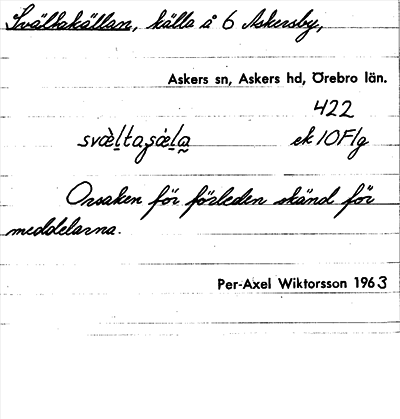 Svältakällan, källa å 6 Askersby,
Askers sn, Askers hd, Örebro län.
422
svæ̀ltaşæ̀la ek 10Flg
Orsaken för förleden okänd för
meddelarna.
Per-Axel Wiktorsson 1963